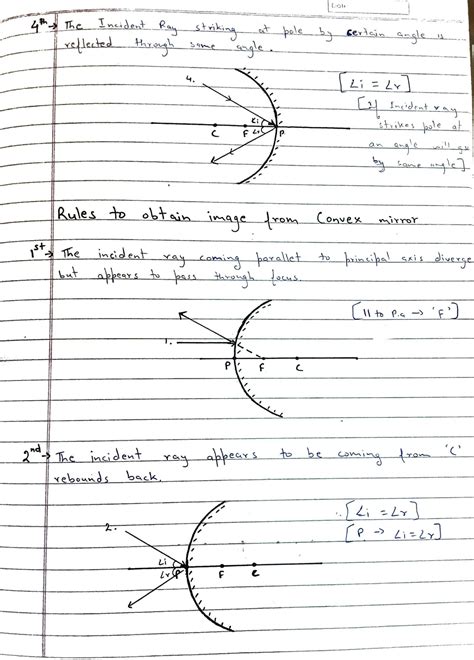 4th → The Incident Ray striking at pole by certain angle is
reflected through same angle.
4.
[∠i = ∠r]
[If Incident ray
strikes pole at
an angle will go
by same angle]
∠i
∠r
C F P
Rules to obtain image from Convex mirror
1st → The incident ray coming parallel to principal axis diverge
but appears to pass through focus.
[II to P.a → 'F']
1.
P F C
2nd → The incident ray appears to be coming from 'C'
rebounds back.
2.
[∠i = ∠r]
[P → ∠i=∠r]
∠i
∠r P F C